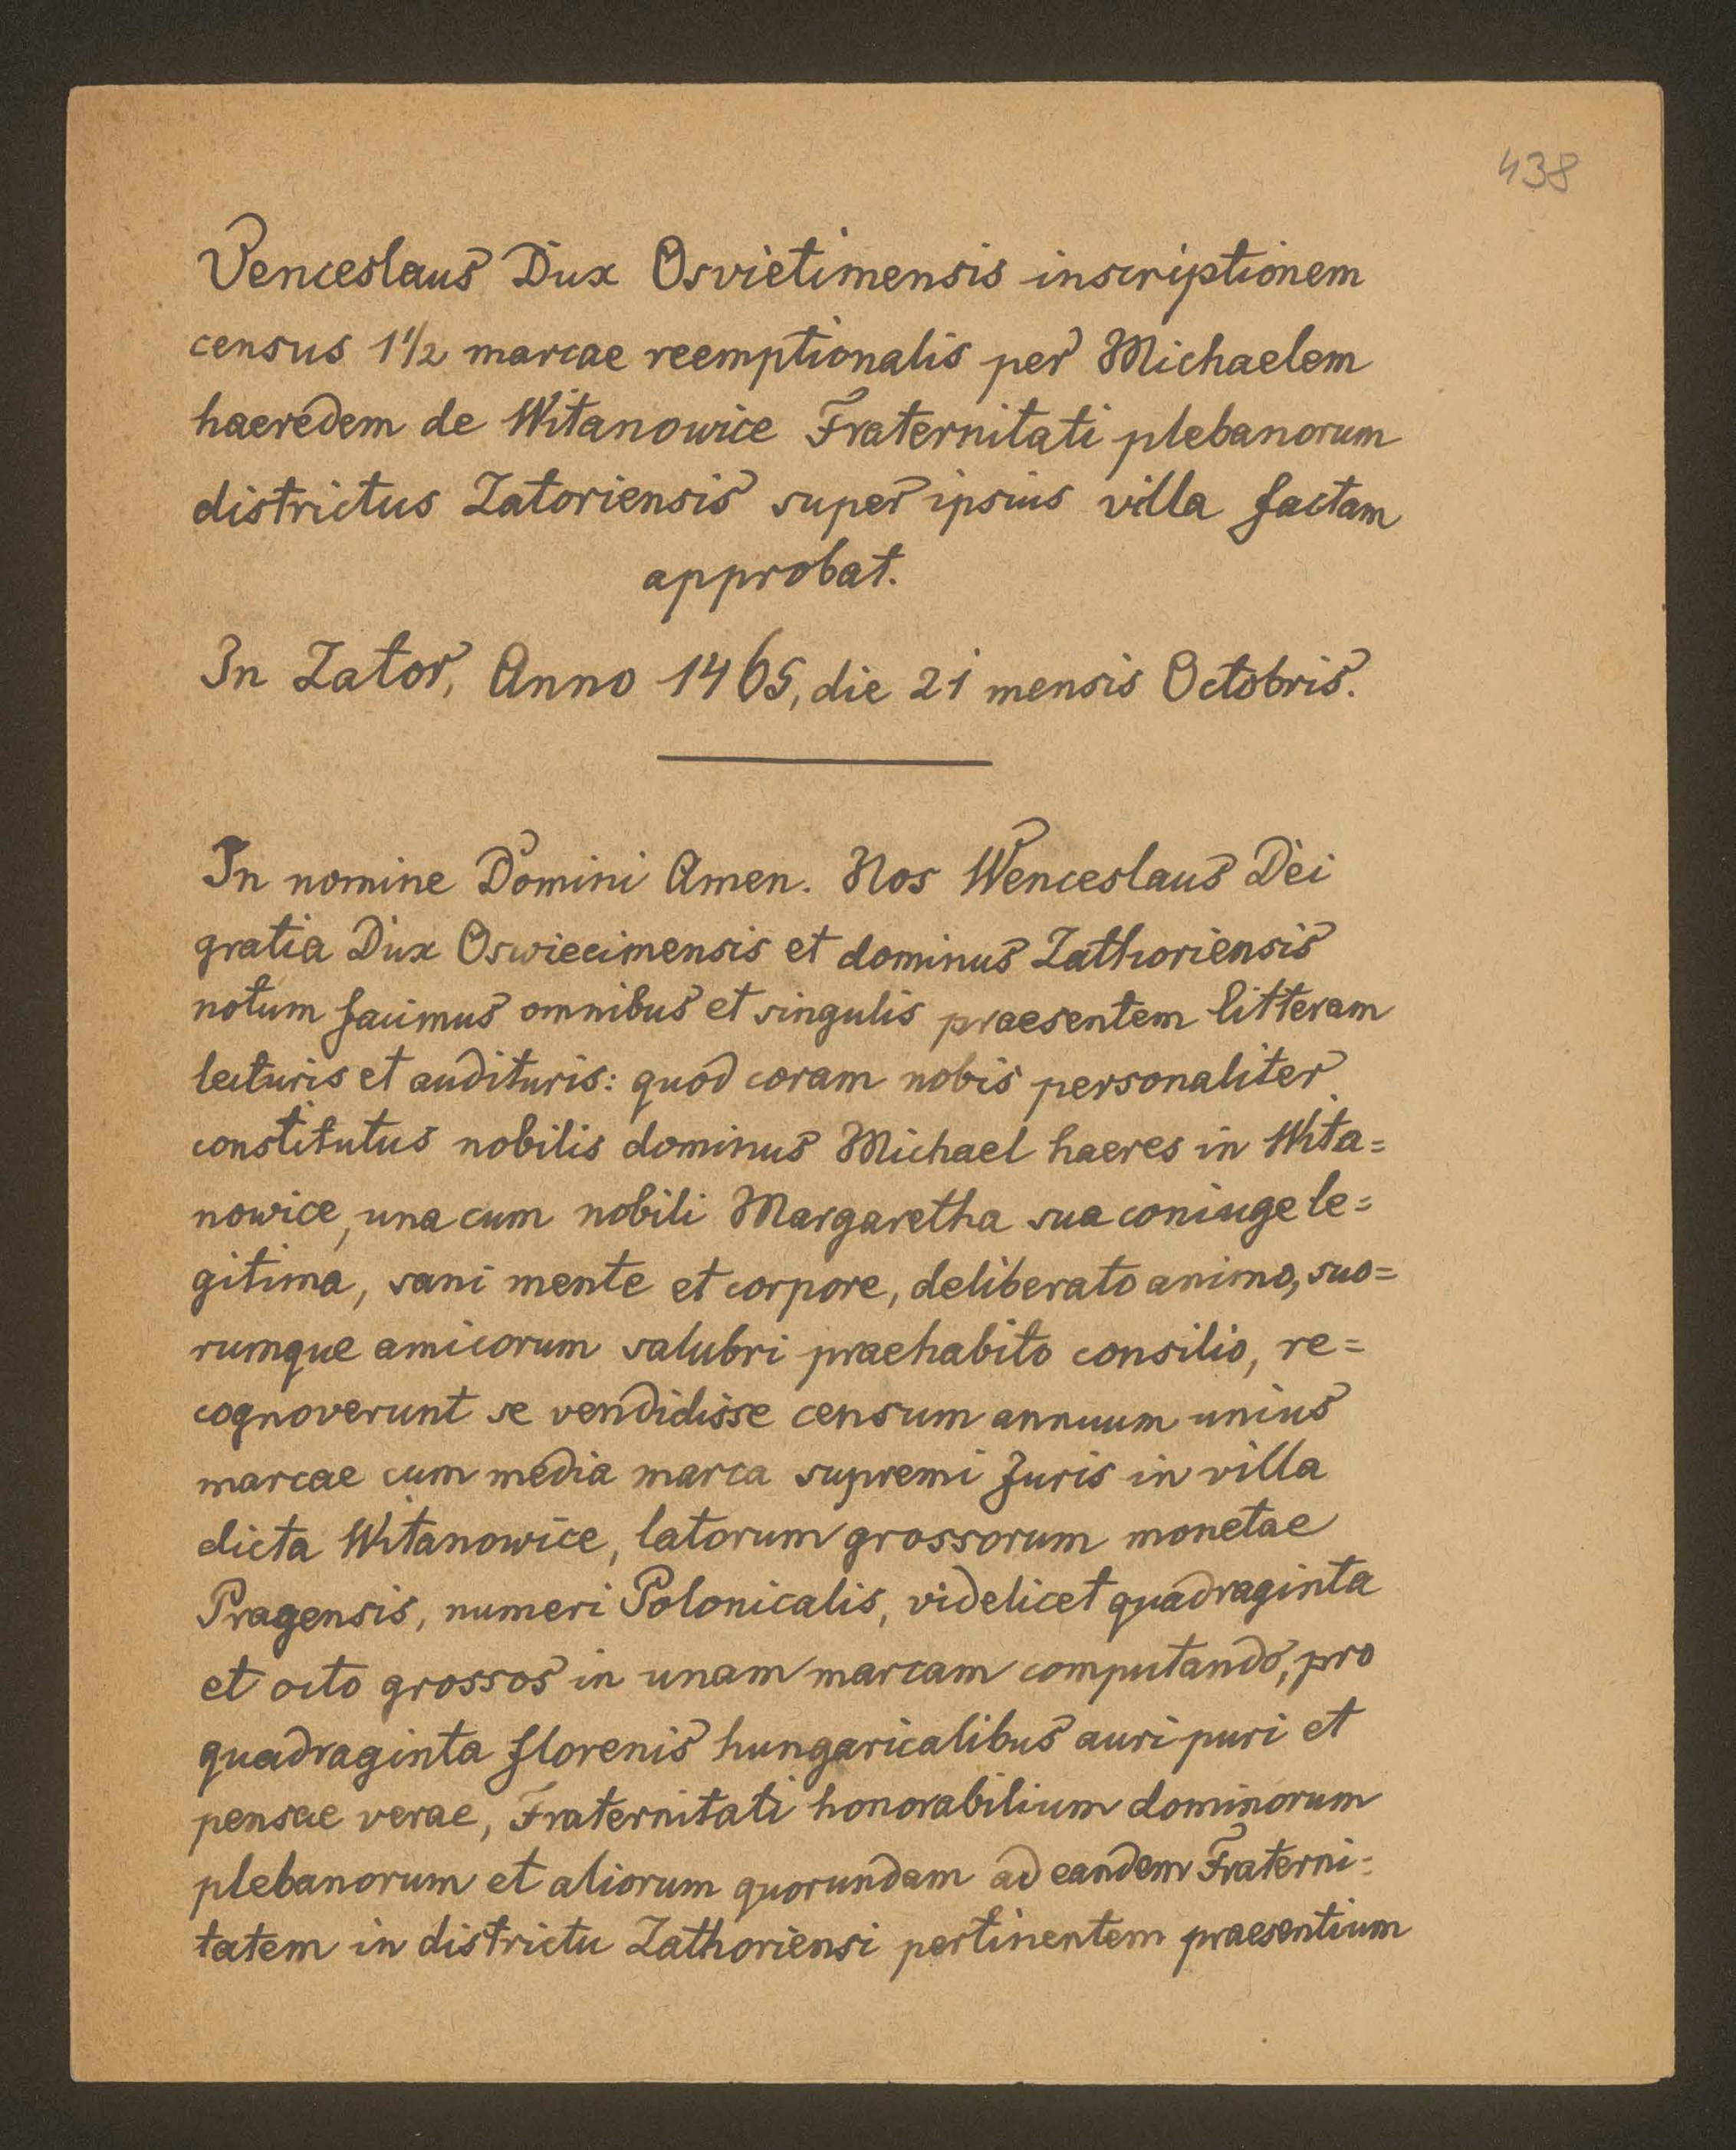 438
Venceslaus Dux Osvietimensis inscriptionem
census 1 1/2 marcae reemptionalis per Michaelem
haeredem de Witanowice Fraternitati plebanorum
districtus Zatoriensis super ipsius villa factam
approbat.
In Zator, Anno 1465, die 21 mensis Octobris.
In nomine Domini Amen. Nos Wenceslaus Dei
gratia Dux Oswiecimensis et dominus Zathoriensis
notum facimus omnibus et singulis praesentem litteram
lecturis et audituris: quod coram nobis personaliter
constitutus nobilis dominus Michael haeres in Wita=
nowice, una cum nobili Margaretha sua coniuge le=
gitima, sani mente et corpore, deliberato animo, suo=
rumque amicorum salubri praehabito consilio, re=
cognoverunt se vendidisse censum annuum unius
marcae cum media marca supremi Juris in villa
dicta Witanowice, latorum grossorum monetae
Pragensis, numeri Polonicalis, videlicet quadraginta
et octo grossos in unam marcam computando, pro
quadraginta florenis hungaricalibus auri puri et
pensae verae, Fraternitati honorabilium dominorum
plebanorum et aliorum quorundam ad eandem Fraterni=
tatem in districtu Zathoriensi pertinentem praesentium